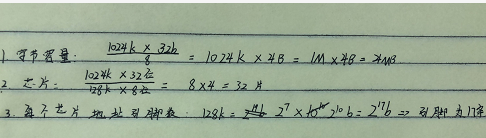 1. 字节容量: (1024k × 32b)/8 = 1024k × 4B = 1M × 4B = 4MB
2. 芯片: (1024k × 32位)/(128k × 8位) = 8×4 = 32 片
3. 每个芯片地址引脚数: 128k = 2^7 × 2^10 b = 2^17 b ⇒ 引脚为17条